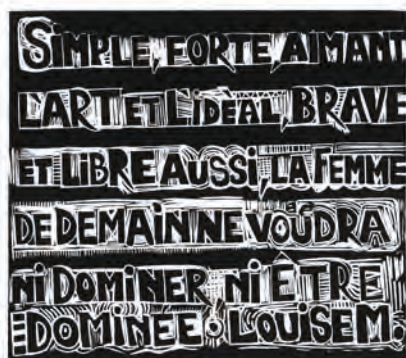 SIMPLE, FORTE, AIMANT
L'ART ET L'IDÉAL, BRAVE
ET LIBRE AUSSI, LA FEMME
DE DEMAIN NE VOUDRA
NI DOMINER NI ÊTRE
DOMINÉE. LOUISE M.